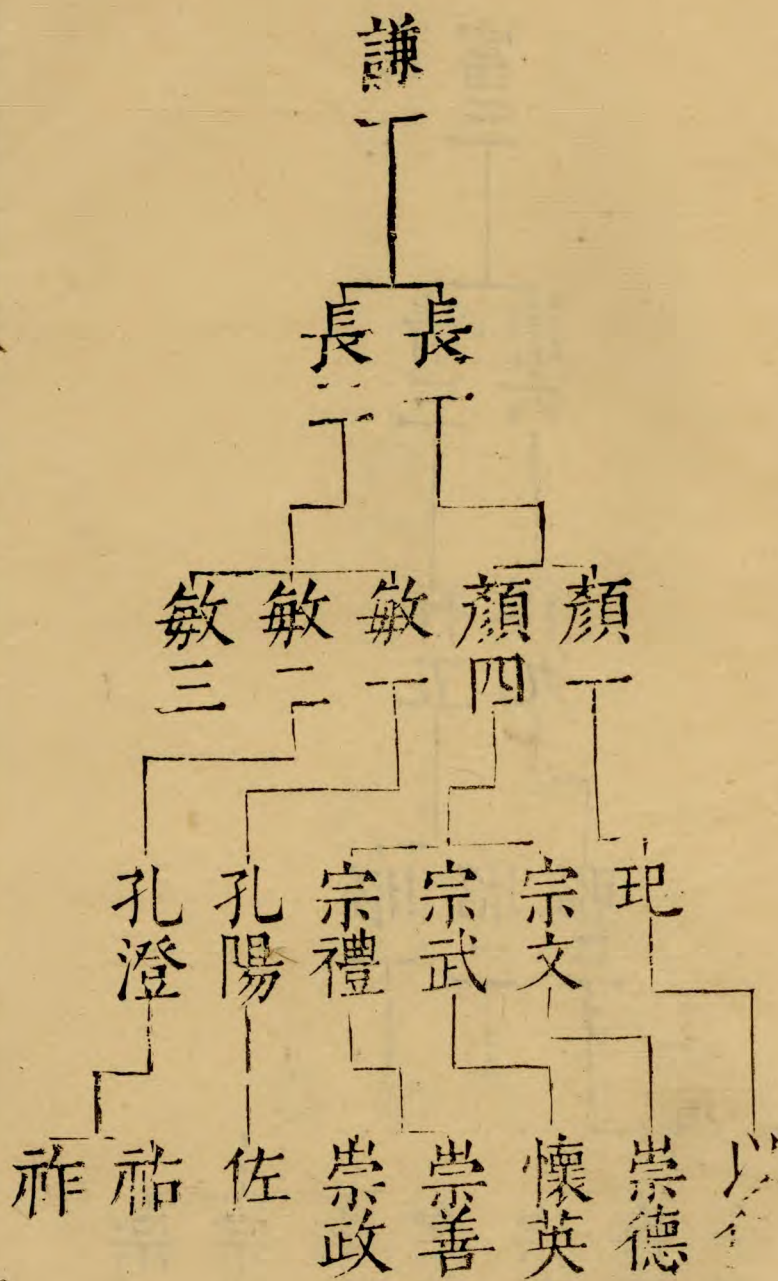 謙一
長一
長二
顏一
顏四
敏一
敏二
敏三
玘
宗文
宗武
宗禮
孔陽
孔澄
以
崇德
懷英
崇善
崇政
佐
祐
祚